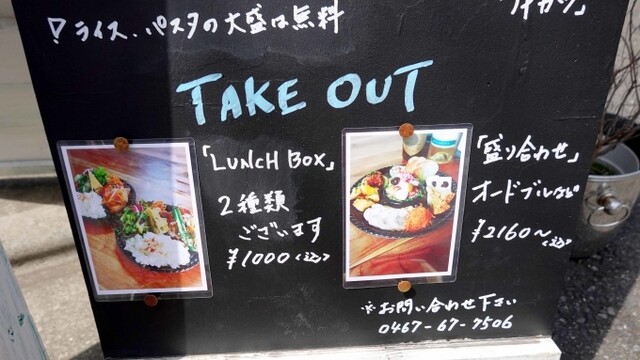 ! ライス、パスタの大盛は無料
TAKE OUT
「LUNCH BOX」
2種類
ございます
¥1000〈込〉
「盛り合わせ」
オードブルなど
¥2160〜〈込〉
※お問い合わせ下さい
0467-67-7506